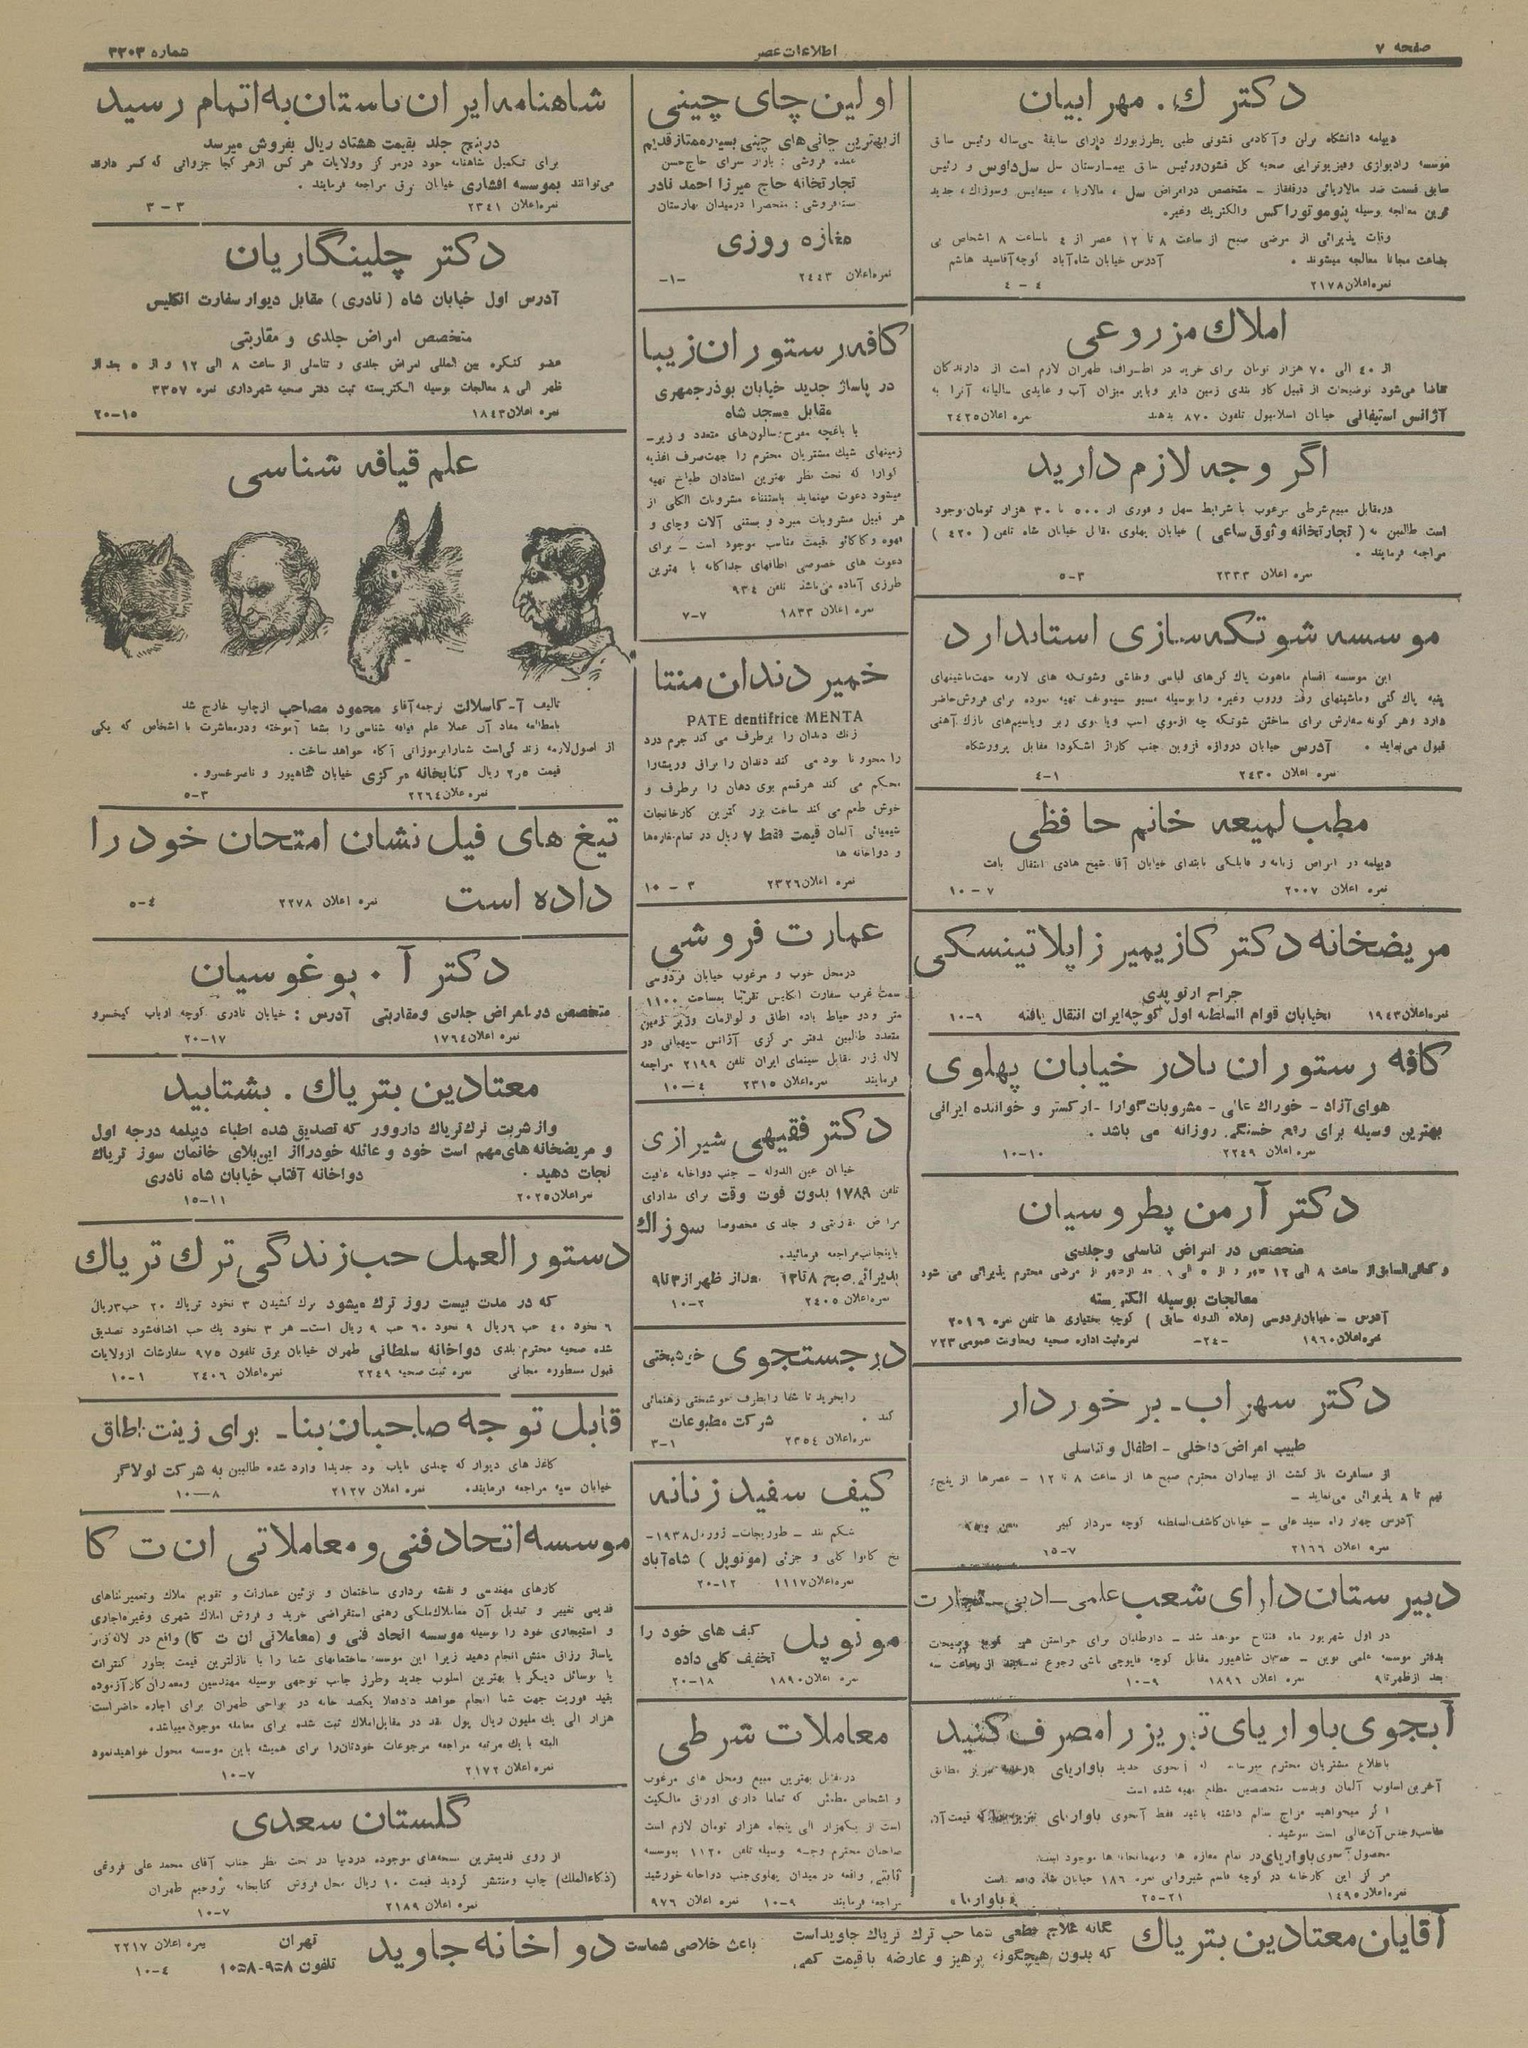 صفحه ۷
اطلاعات عصر
شماره ۳۲۰۳
دکتر ك. مهرابیان
دیپلمه دانشگاه برلن و آکادمی قشونی طبی پطرزبورك دارای سابقهٔ سی‌ساله رئیس سابق
موسسه رادیولژی و فیزیوتراپی صحیه کل قشون ورئیس سابق بیمارستان سل سل‌داوس و رئیس
سابق قسمت ضد مالاریائی درقفقاز – متخصص درامراض سل ، مالاریا ، سیفلیس وسوزاك ، جدید
ترین معالجه بوسیله پنوموتوراکس والکتریك وغیره.
وقات پذیرائی از مرضی صبح از ساعت ۸ تا ۱۲ عصر از ٤ تاساعت ۸ اشخاص بی
بضاعت مجانا معالجه میشوند . آدرس خیابان شاه‌آباد کوچه آقاسید هاشم
نمره اعلان ۲۱۷۸ ٤ – ٤
املاك مزروعی
از ٤۰ الی ۷۰ هزار تومان برای خرید در اطراف طهران لازم است از دارندگان
تقاضا می‌شود توضیحات از قبیل کار بندی زمین دایر وبایر میزان آب و عایدی سالیانه آنرا به
آژانس استیفانی خیابان اسلامبول تلفون ۸۷۰ بدهند نمره اعلان ۲٤۲۵
اگر وجه لازم دارید
درمقابل مبیع‌شرطی مرغوب با شرایط سهل و فوری از ۵۰۰ تا ۳۰ هزار تومان‌وجود
است طالبین به ( تجارتخانه وثوق ساعی ) خیابان پهلوی مقابل خیابان شاه تلفن ( ٤۲۰ )
مراجعه فرمایند .
نمره اعلان ۲۳۳۳ ۳–۵
موسسه شوتکه‌سازی استاندارد
این موسسه اقسام ماهوت پاك کن‌های لباسی ونقاشی وشوتکه های لازمه جهت‌ماشینهای
پنبه پاك کنی وماشینهای رفت وروب وغیره را بوسیله تهیه نموده برای فروش‌حاضر
دارد وهر گونه سفارش برای ساختن شوتکه چه ازموی اسب ویا موی زبر ویاسیم‌های نازك آهنی
قبول می‌نماید . آدرس خیابان دروازه قزوین جنب کاراژ اشکودا مقابل پرورشگاه
نمره اعلان ۲٤۳۰ ۱–٤
مطب لمیعه خانم حافظی
دیپلمه در امراض زنانه و قابلگی بابتدای خیابان آقا شیخ هادی انتقال یافت
نمره اعلان ۲۰۰۷ ۷ – ۱۰
مریضخانه دکتر کازیمیر زاپلاتینسکی
جراح ارتوپدی
نمره‌اعلان ۱۹٤۳ بخیابان قوام السلطنه اول کوچه‌ایران انتقال یافته ۹–۱۰
کافه رستوران نادر خیابان پهلوی
هوای‌آزاد – خوراك عالی – مشروبات گوارا – ارکستر و خواننده ایرانی
بهترین وسیله برای رفع خستگی روزانه می باشد .
نمره اعلان ۲۲٤۹ ۱۰–۱۰
دکتر آرمن پطروسیان
متخصص در امراض تناسلی وجلدی
وکمافی‌السابق‌از ساعت ۸ الی ۱۲ ظهر و از ۵ الی بعد ازظهر از مرضی محترم پذیرائی می شود
معالجات بوسیله الکتریسته
آدرس – خیابان‌فردوسی (علاء الدوله سابق ) کوچه بختیاری ها تلفن نمره ۲۰۱٦
نمره‌اعلان ۱۹٦۰ –۲٤– نمره‌ثبت اداره صحیه ومعاونت عمومی ۷۲۳
دکتر سهراب - برخوردار
طبیب امراض داخلی - اطفال و تناسلی
از مسافرت باز گشت از بیماران محترم صبح ها از ساعت ۸ تا ۱۲ – عصرها از پنج
نیم تا ۸ پذیرائی می‌نماید –
آدرس چهار راه سید علی – خیابان‌کاشف‌السلطنه کوچه سردار کبیر
نمره اعلان ۲۱٦٦ ۷–۱۵
دبیرستان دارای شعب علمی – ادبی – تجارت
در اول شهریور ماه افتتاح خواهد شد – داوطلبان برای خواستن
بدفتر موسسه علمی نوین – خیابان شاهپور مقابل کوچه قاپوچی باشی رجوع نمایند از ساعت سه
بعد ازظهر تا ۹ نمره اعلان ۱۸۹٦ ۹–۱۰
آبجوی باواریای تبریز را مصرف کنید
باطلاع مشتریان محترم میرساند که آبجوی جدید باواریای تبریز مطابق
آخرین اسلوب آلمان وبدست متخصصین مطلع تهیه شده است
اگر میخواهید مزاج سالم داشته باشید فقط آبجوی باواریای که قیمت آن
مناسب وجنس آن‌عالی است بنوشید .
محصول آبجوی باواریای در تمام مغازه ها ومهمانخانه‌ها موجود است
مر کز این کارخانه در کوچه قاسم شیروانی نمره ۱۸٦ خیابان شاه است
نمره‌اعلان ۱٤۹۵ ۲۱–۲۵ باواریا
اولین چای چینی
از بهترین چائی های چینی بسیار ممتاز قدیم
عمده فروشی : بازار سرای حاج‌حسن
تجارتخانه حاج میرزا احمد نادر
منحصرا درمیدان بهارستان
مغازه روزی
نمره‌اعلان ۲٤٤۳ –۱–
کافه رستوران زیبا
در پاساژ جدید خیابان بوذرجمهری
مقابل مسجد شاه
با باغچه مفرح سالون‌های متعدد و زیر–
زمینهای شیك مشتریان محترم را جهت‌صرف اغذیه
گوارا که تحت نظر بهترین استادان طباخ تهیه
میشود دعوت مینماید باستثناء مشروبات الکلی از
هر قبیل مشروبات مبرد و بستنی آلات وچای و
قهوه وکاکائو بقیمت مناسب موجود است – برای
دعوت های خصوصی اطاقهای جداگانه با بهترین
طرزی آماده می‌باشد تلفن ۹۳٤
نمره اعلان ۱۸۳۳ ۷–۷
خمیر دندان منتا
PATE dentifrice MENTA
زنك دندان را برطرف می کند جرم درد
را محو و نابود می کند دندان را براق وریشه‌را
محکم می کند هرقسم بوی دهان را برطرف و
خوش طعم می کند ساخت بزرگترین کارخانجات
شیمیائی آلمان قیمت فقط ۷ ریال در تمام مغازه‌ها
و دواخانه ها
نمره اعلان ۲۳۲٦ ۳ – ۱۰
عمارت فروشی
درمحل خوب و مرغوب خیابان فردوسی
سمت غرب سفارت انگلیس تقریبا بمساحت ۱۱۰۰
متر ودو حیاط یازده اطاق و لوازمات وزیر زمین
متعدد طالبین بدفتر مرکزی آژانس سیهانی در
لاله زار مقابل سینمای ایران تلفن ۲۱۹۹ مراجعه
فرمایند نمره‌اعلان ۲۳۱۵ ٤–۱۰
دکتر فقیهی شیرازی
خیابان عین الدوله – جنب دواخانه عافیت
تلفن ۱۷۸۹ بدون فوت وقت برای مداوای
امراض مقاربتی و جلدی مخصوصا سوزاك
باینجانب مراجعه فرمائید.
پذیرائی صبح ۸ تا ۱۲ بعداز ظهر از ۳ تا ۹
نمره‌اعلان ۲٤۰۵ ۲–۱۰
در جستجوی خوشبختی
رابخرید تا شما رابطرف خوشبختی رهنمائی
کند . شرکت مطبوعات
نمره‌اعلان ۲۳۵٤ ۱–۳
کیف سفید زنانه
طور یجات – ژورنال ۱۹۳۸ –
نخ کاموا کلی و جزئی (مونوپل ) شاه‌آباد
نمره‌اعلان ۱۱۱۷ ۱۲–۲۰
مونوپل کیف های خود را
تخفیف کلی داده
نمره اعلان ۱۸۹۰ ۱۸–۲۰
معاملات شرطی
درمقابل بهترین مبیع ومحل های مرغوب
و اشخاص مطمئن که تماما دارای اوراق مالکیت
است از یکهزار الی پنجاه هزار تومان لازم است
صاحبان محترم وجه بوسیله تلفن ۱۱۲۰ بموسسه
ثابتی واقعه در میدان پهلوی جنب دواخانه خورشید
مراجعه فرمایند ۹–۱۰ نمره اعلان ۹۷٦
شاهنامه ایران باستان به اتمام رسید
درپنج جلد بقیمت هشتاد ریال بفروش میرسد
برای تکمیل شاهنامه خود درمرکز وولایات هر کس ازهر کجا جزواتی که کسر دارند
می‌توانند بموسسه افشاری خیابان برق مراجعه فرمایند .
نمره‌اعلان ۲۳٤۱ ۳ – ۳
دکتر چلینگاریان
آدرس اول خیابان شاه (نادری ) مقابل دیوار سفارت انگلیس
متخصص امراض جلدی و مقاربتی
عضو کنگره بین المللی امراض جلدی و تناسلی از ساعت ۸ الی ۱۲ و از ۵ بعد از
ظهر الی ۸ معالجات بوسیله الکتریسته ثبت دفتر صحیه شهرداری نمره ۳۳۵۷
نمره اعلان ۱۸٤۳ ۱۵–۲۰
علم قیافه شناسی
تالیف آ – کاسلانت ترجمه آقای محمود مصاحب ازچاپ خارج شد
بامطالعه مفاد آن عملا علم قیافه شناسی را بشما آموخته ودرمعاشرت با اشخاص که یکی
از اصول‌لازمه زندگی‌است شمارابرموزاتی آگاه خواهد ساخت .
قیمت ۲٫۵ ریال کتابخانه مرکزی خیابان شاهپور و ناصرخسرو .
نمره اعلان ۲۲٦٤ ۳–۵
تیغ های فیل نشان امتحان خود را
داده است نمره اعلان ۲۲۷۸ ٤–۵
دکتر آ . بوغوسیان
متخصص در امراض جلدی ومقاربتی آدرس : خیابان نادری کوچه ارباب کیخسرو
نمره‌اعلان ۱۷٦٤ ۱۷–۲۰
معتادین بتریاك . بشتابید
واز شربت ترك تریاك داروور که تصدیق شده اطباء دیپلمه درجه اول
و مریضخانه های‌مهم است خود و عائله خودرااز این‌بلای خانمان سوز تریاك
نجات دهید . دواخانه آفتاب خیابان شاه نادری
نمره‌اعلان ۲۰۲۵ ۱۱–۱۵
دستور العمل حب زندگی ترك تریاك
که در مدت بیست روز ترك میشود ترك کشیدن ۳ نخود تریاك ۲۰ حب ۳ریال
٦ نخود ٤۰ حب ٦ریال ۹ نخود ٦۰ حب ۹ ریال است – هر ۳ نخود یك حب اضافه‌شود تصدیق
شده صحیه محترم بلدی دواخانه سلطانی طهران خیابان برق تلفون ۹۷۵ سفارشات ازولایات
قبول مسطوره مجانی نمره ثبت صحیه ۲۲٤۹ نمره‌اعلان ۲٤۰٦ ۱–۱۰
قابل توجه صاحبان بنا – برای زینت اطاق
کاغذ های دیوار که چندی نایاب بود جدیدا وارد شده طالبین به شرکت لولاگر
خیابان سپه مراجعه فرمایند. نمره اعلان ۲۱۲۷ ۸—۱۰
موسسه اتحاد فنی و معاملاتی ان ت کا
کارهای مهندسی و نقشه برداری ساختمان و تزئین عمارات و تقویم املاك وتعمیر بناهای
قدیمی تغییر و تبدیل آن معاملات‌ملکی رهنی استقراضی خرید و فروش املاك شهری وغیره‌اجاری
و استیجاری خود را بوسیله موسسه اتحاد فنی و (معاملاتی ان ت کا) واقع در لاله‌زار
پاساژ رزاق منش انجام دهید زیرا این موسسه ساختمانهای شما را با نازلترین قیمت بطور کنترات
یا بوسائل دیگر با بهترین اسلوب جدید وطرز جالب توجهی بوسیله مهندسین ومعماران کارآزموده
بقید فوریت جهت شما انجام خواهد داد فعلا یکصد خانه در نواحی طهران برای اجاره حاضراست
هزار الی یك ملیون ریال پول نقد در مقابل‌املاك ثبت شده برای معامله موجود میباشد.
البته با یك مرتبه مراجعه مرجوعات خودتان‌را برای همیشه باین موسسه محول خواهیدنمود
نمره اعلان ۲۱۷۲ ۷–۱۰
گلستان سعدی
از روی قدیمترین نسخه‌های موجوده دردنیا در تحت نظر جناب آقای محمد علی فروغی
(ذکاءالملك) چاپ ومنتشر گردید قیمت ۱۰ ریال محل فروش کتابخانه بروخیم طهران
نمره اعلان ۲۱۸۹ ۷–۱۰
آقایان معتادین بتریاك
یگانه علاج قطعی شما حب ترك تریاك جاویداست
که بدون هیچگونه پرهیز و عارضه با قیمت کمی
باعث خلاصی شماست دواخانه جاوید
تهران
تلفون ۹۵۸–۱۰۵۸
نمره اعلان ۲۲۱۷
٤–۱۰